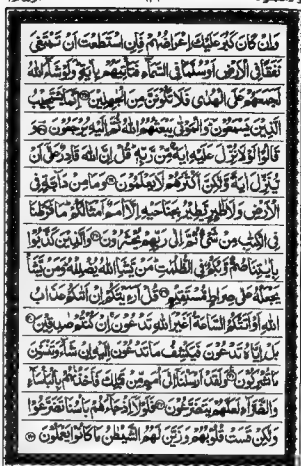 وَاِنْ كَانَ كَبُرَ عَلَيْكَ اِعْرَاضُهُمْ فَاِنِ اسْتَطَعْتَ اَنْ تَبْتَغِيَ
نَفَقًا فِي الْاَرْضِ اَوْ سُلَّمًا فِي السَّمَآءِ فَتَاْتِيَهُمْ بِاٰيَةٍ وَلَوْ شَآءَ اللّٰهُ
لَجَمَعَهُمْ عَلَى الْهُدٰى فَلَا تَكُوْنَنَّ مِنَ الْجٰهِلِيْنَ ۝ اِنَّمَا يَسْتَجِيْبُ
الَّذِيْنَ يَسْمَعُوْنَ وَالْمَوْتٰى يَبْعَثُهُمُ اللّٰهُ ثُمَّ اِلَيْهِ يُرْجَعُوْنَ ۝ وَ
قَالُوْا لَوْلَا نُزِّلَ عَلَيْهِ اٰيَةٌ مِّنْ رَّبِّهٖ قُلْ اِنَّ اللّٰهَ قَادِرٌ عَلٰٓى اَنْ
يُّنَزِّلَ اٰيَةً وَّلٰكِنَّ اَكْثَرَهُمْ لَا يَعْلَمُوْنَ ۝ وَمَا مِنْ دَآبَّةٍ فِي
الْاَرْضِ وَلَا طٰٓئِرٍ يَّطِيْرُ بِجَنَاحَيْهِ اِلَّآ اُمَمٌ اَمْثَالُكُمْ مَا فَرَّطْنَا
فِي الْكِتٰبِ مِنْ شَيْءٍ ثُمَّ اِلٰى رَبِّهِمْ يُحْشَرُوْنَ ۝ وَالَّذِيْنَ كَذَّبُوْا
بِاٰيٰتِنَا صُمٌّ وَّبُكْمٌ فِي الظُّلُمٰتِ مَنْ يَّشَاِ اللّٰهُ يُضْلِلْهُ وَمَنْ يَّشَاْ
يَجْعَلْهُ عَلٰى صِرَاطٍ مُّسْتَقِيْمٍ ۝ قُلْ اَرَءَيْتَكُمْ اِنْ اَتٰىكُمْ عَذَابُ
اللّٰهِ اَوْ اَتَتْكُمُ السَّاعَةُ اَغَيْرَ اللّٰهِ تَدْعُوْنَ اِنْ كُنْتُمْ صٰدِقِيْنَ ۝
بَلْ اِيَّاهُ تَدْعُوْنَ فَيَكْشِفُ مَا تَدْعُوْنَ اِلَيْهِ اِنْ شَآءَ وَتَنْسَوْنَ
مَا تُشْرِكُوْنَ ۝ وَلَقَدْ اَرْسَلْنَآ اِلٰٓى اُمَمٍ مِّنْ قَبْلِكَ فَاَخَذْنٰهُمْ بِالْبَاْسَآءِ
وَالضَّرَّآءِ لَعَلَّهُمْ يَتَضَرَّعُوْنَ ۝ فَلَوْلَآ اِذْ جَآءَهُمْ بَاْسُنَا تَضَرَّعُوْا
وَلٰكِنْ قَسَتْ قُلُوْبُهُمْ وَزَيَّنَ لَهُمُ الشَّيْطٰنُ مَا كَانُوْا يَعْمَلُوْنَ ۝